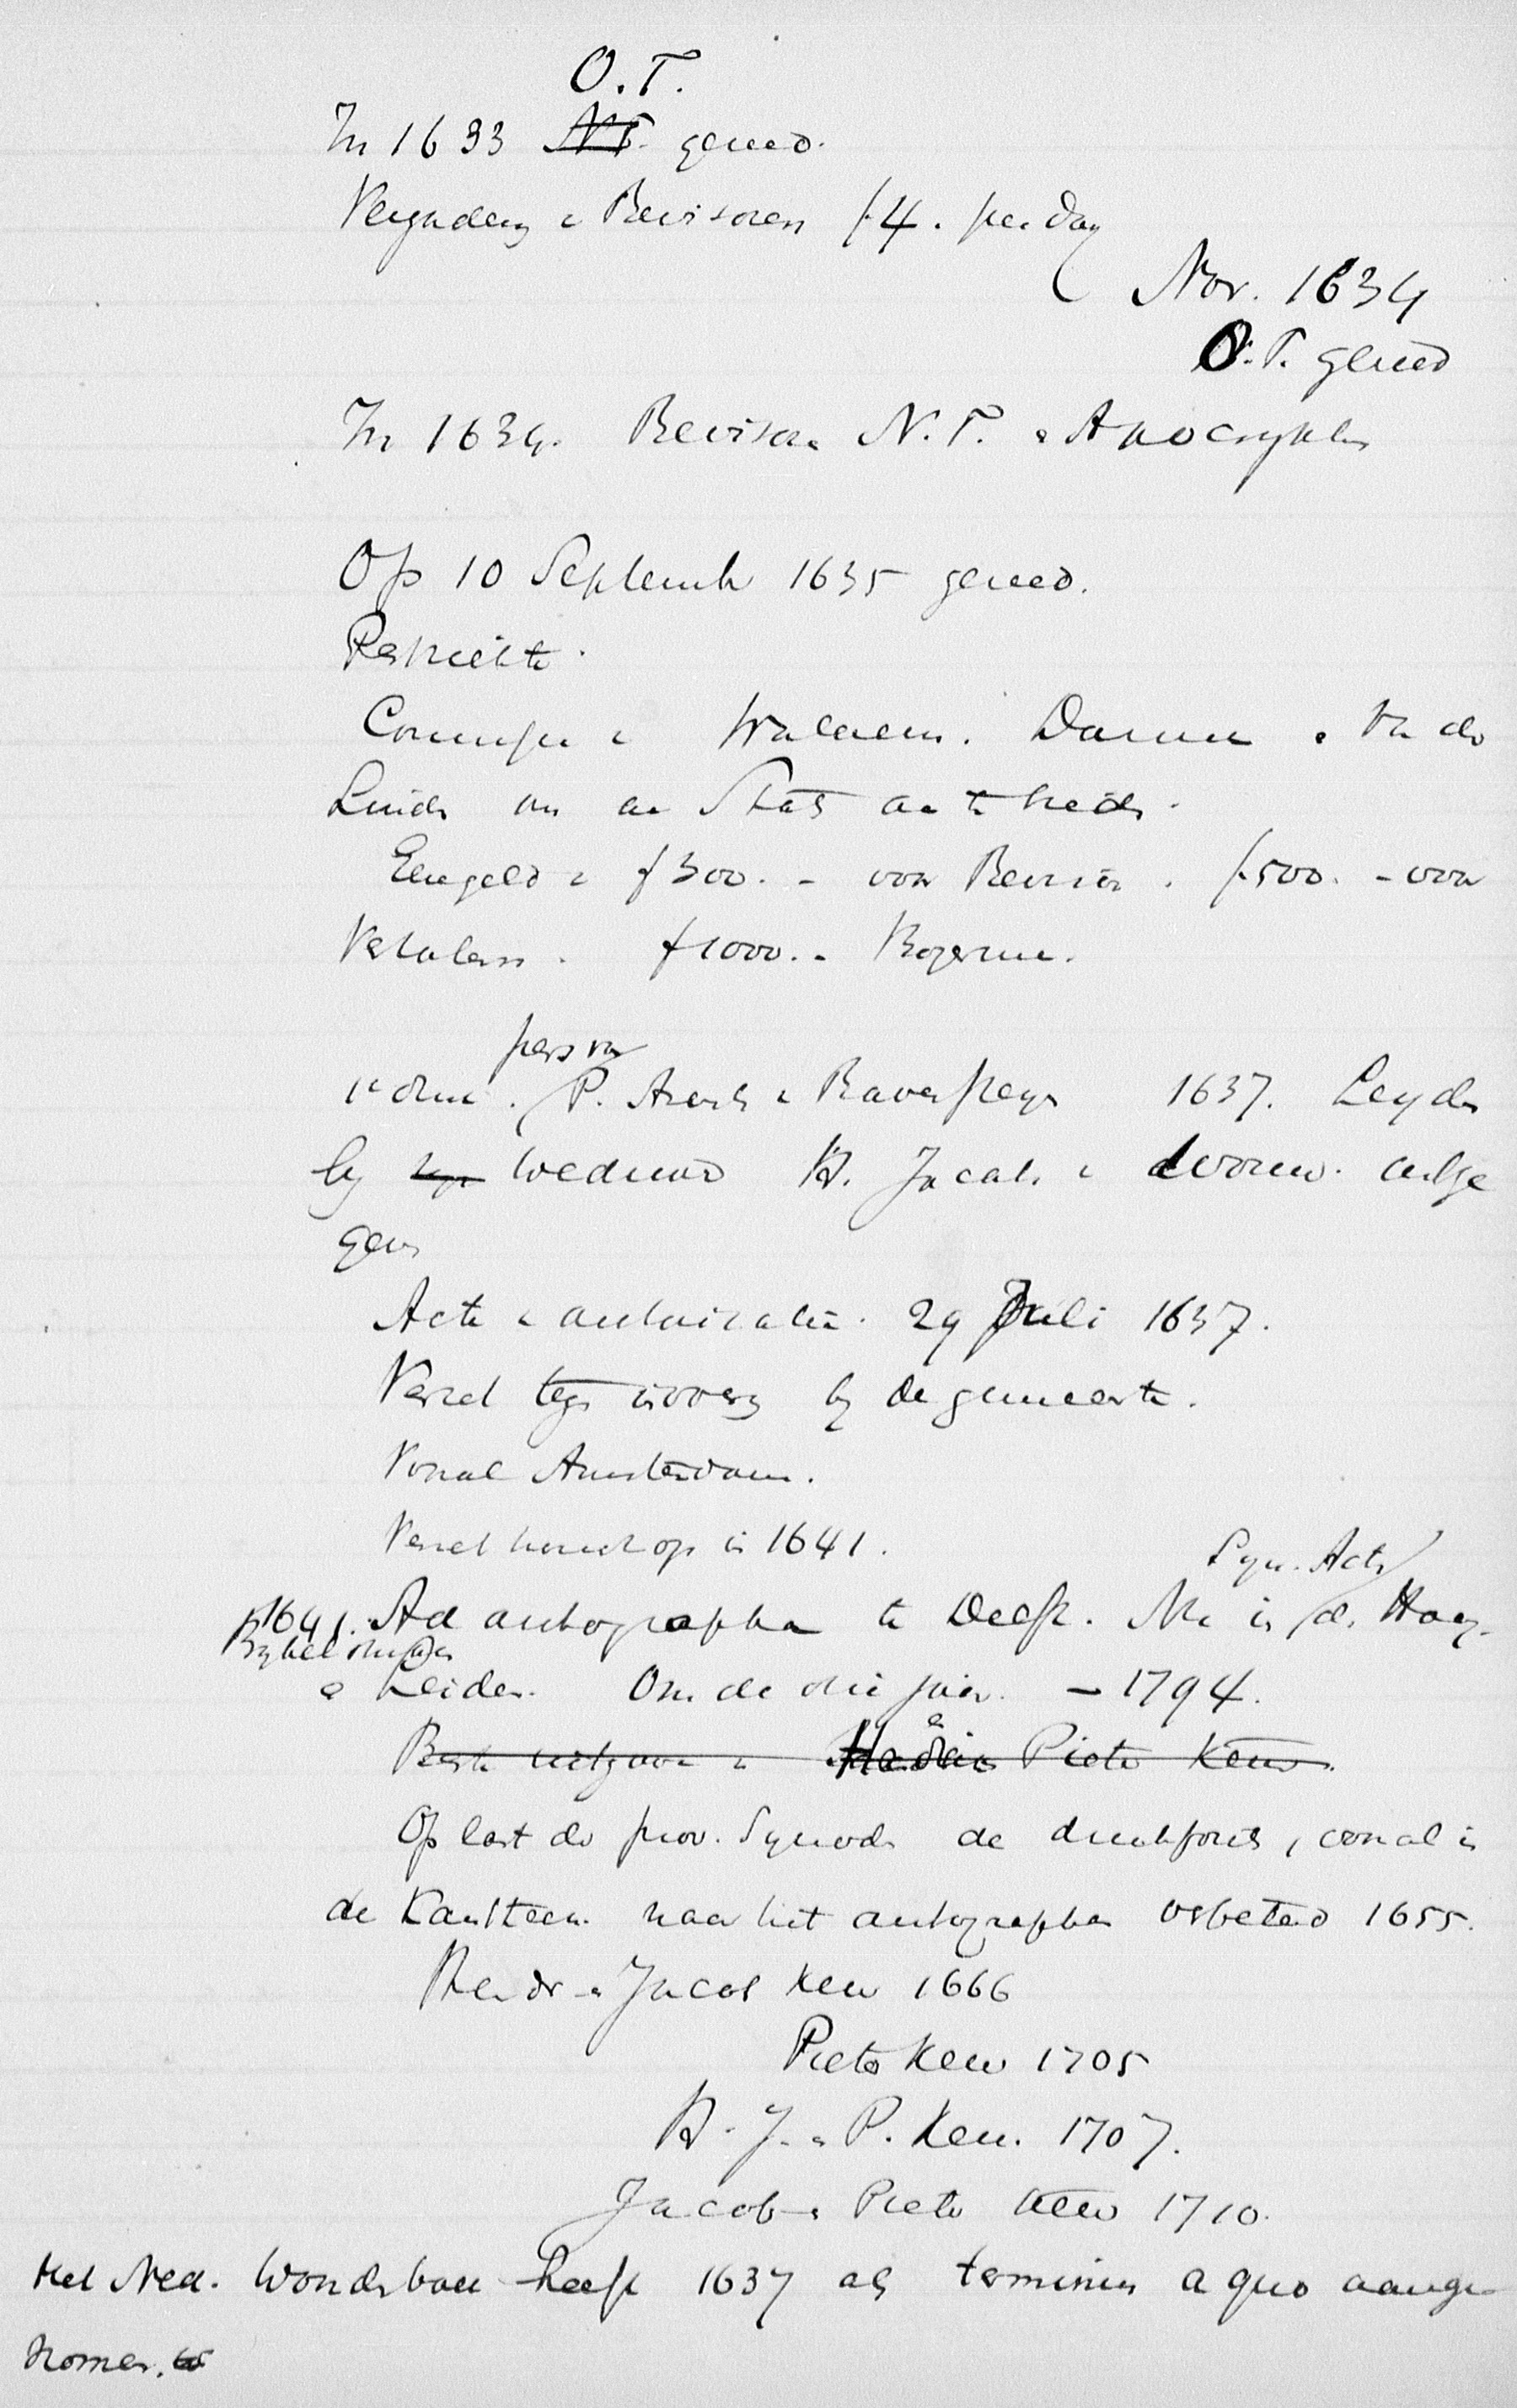 O.T.
In 1633 N.T. gereed.
Vergadering v Revisoren f 4. per dag
Nov. 1634
O.T. gereed
In 1634. Revisoren N.T. & Apocryphen
Op 10 Septemb 1635 gereed.
Pestziekte.
Commissie v Walaeus. Damm
Leiden om de Stat aan te bieden.
Eeregeld v f 300. - voor Revisor. f 500. - voor
Vertalers. f 1000. - Bogerm.
pers van
1e druk. P. Aerts v Ravesteyn 1637. Leyden
by weduwe H. Jacob. v Wouw. uitge
geven
Acte v autorisatie. 29 Juli 1637.
Verzet tegen invoering by de gemeente.
Vooral Amsterdam.
Verzet houdt op in 1641.
Syn. Acts
1641. Ad autographa te Delft. Nu in d. Haag.
& Leiden. Om de drie jaar. - 1794.
Beste uitgave v Hendr & Pieter Keur.
Op last der prov. Synode de drukfouten, vooral in
de Kantteek. naar het autographa verbeterd 1655.
Hendr - & Jacob Keur 1666
Pieter Keur 1705
H. J. & P. Keur. 1707.
Jacob & Pieter Keur 1710.
Het Ned. Woordenboek heeft 1637 als terminus a quo aange
nomen.